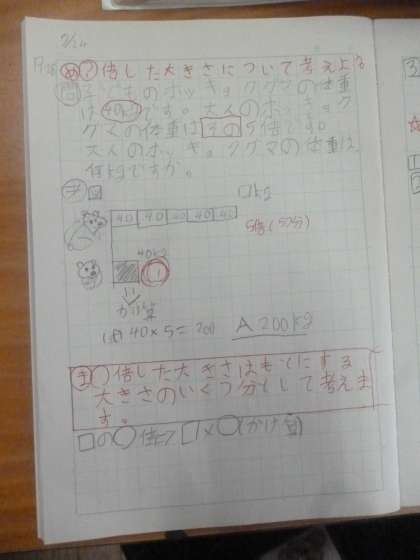 2/24
め ○倍した大きさについて考えよう
問 子どものホッキョクグマの体重
は40kgです。大人のホッキョク
グマの体重はその5倍です。
大人のホッキョクグマの体重は、
何kgですか。
図
□kg
40 40 40 40 40
5倍(5つ分)
40kg
①
かけ算
(式) 40×5=200 A 200kg
ま ○倍した大きさはもとにする
大きさのいくつ分として考えま
す。
□の○倍は□×○(かけ算)